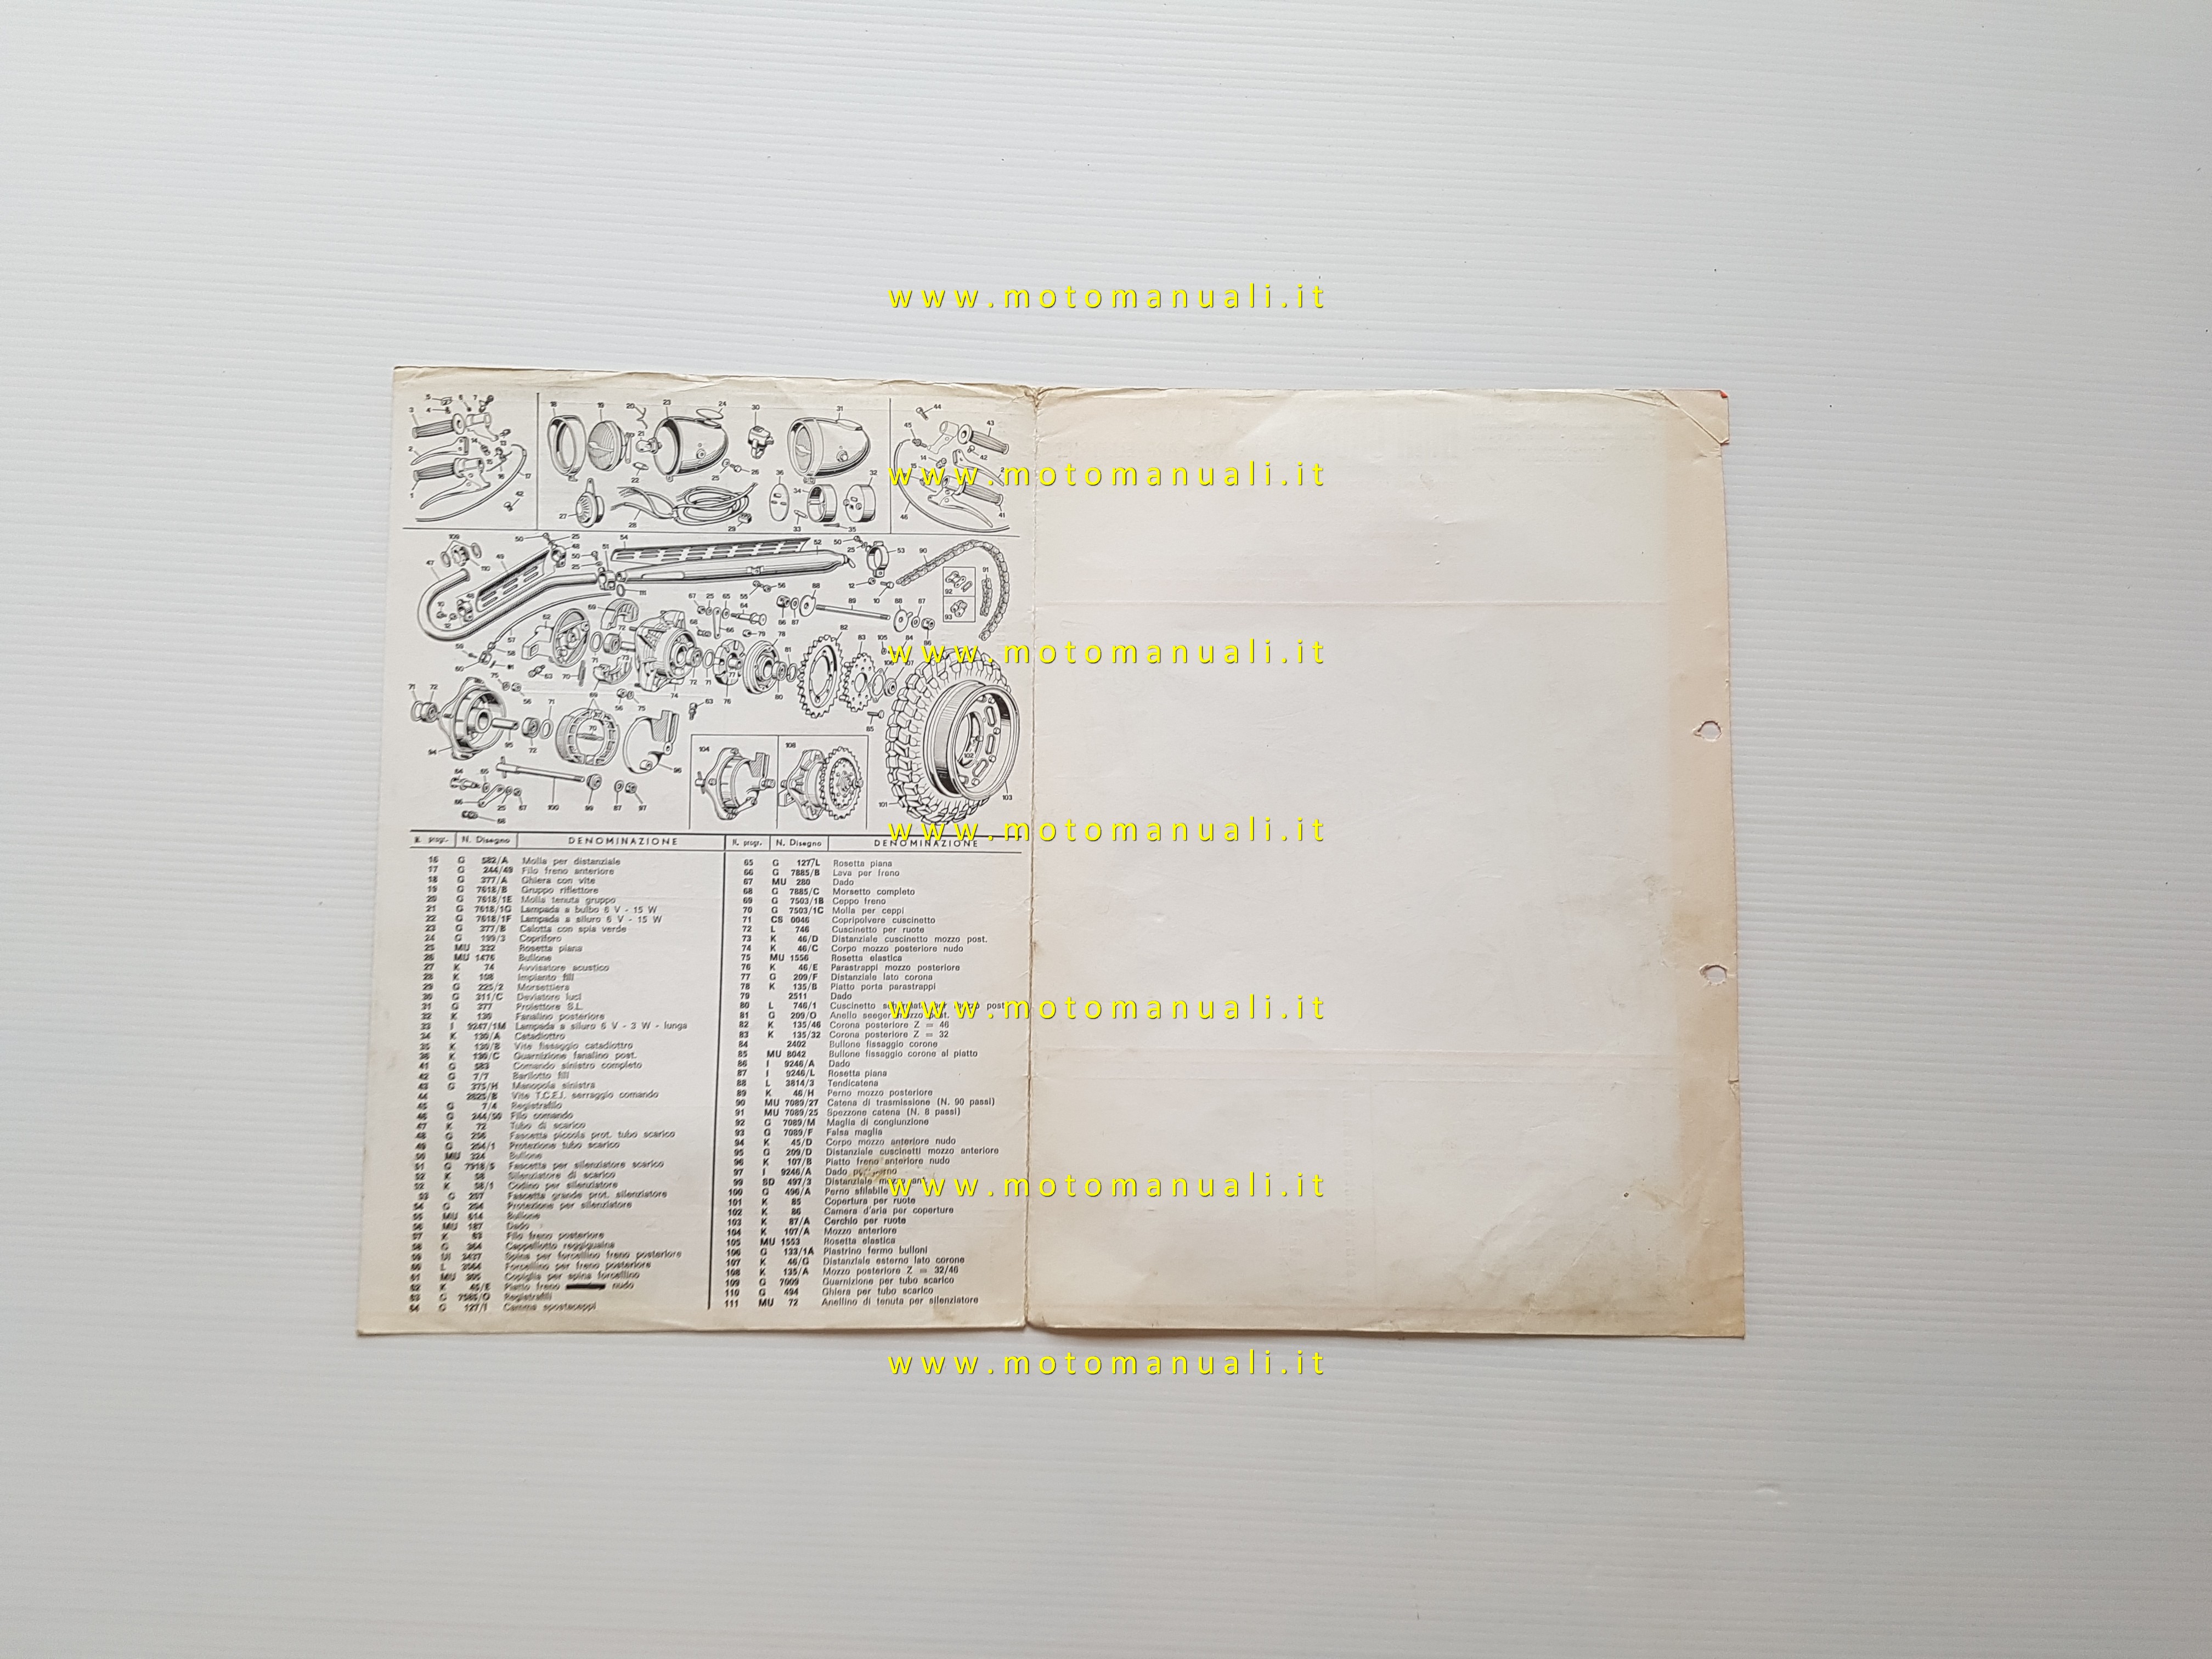 www.motomanuali.it
www.motomanuali.it
www.motomanuali.it
www.motomanuali.it
www.motomanuali.it
www.motomanuali.it
www.motomanuali.it
N. progr. N. Disegno DENOMINAZIONE
16 G 582/A Molla per distanziale
17 G 244/49 Filo freno anteriore
18 G 377/A Ghiera con vite
19 G 7618/B Gruppo riflettore
20 G 7618/1E Molla tenuta gruppo
21 G 7618/1G Lampada a bulbo 6 V - 15 W
22 G 7618/1F Lampada a siluro 6 V - 15 W
23 G 377/B Calotta con spia verde
24 G 199/3 Copriforo
25 MU 332 Rosetta piana
26 MU 1476 Bullone
27 K 74 Avvisatore acustico
28 K 108 Impianto fili
29 G 225/2 Morsettiera
30 G 311/C Deviatore luci
31 G 377 Proiettore S.L.
32 K 130 Fanalino posteriore
33 I 9247/1M Lampada a siluro 6 V - 3 W - lunga
34 K 130/A Catadiottro
35 K 130/B Vite fissaggio catadiottro
36 K 130/C Guarnizione fanalino post.
41 G 583 Comando sinistro completo
42 G 7/7 Barilotto fili
43 G 375/H Manopola sinistra
44 2825/B Vite T.C.E.I. serraggio comando
45 G 7/4 Registrafilo
46 G 244/50 Filo comando
47 K 72 Tubo di scarico
48 G 256 Fascetta piccola prot. tubo scarico
49 G 254/1 Protezione tubo scarico
50 MU 224 Bullone
51 G 7918/5 Fascetta per silenziatore scarico
52 K 58 Silenziatore di scarico
52 K 58/1 Codino per silenziatore
53 G 257 Fascetta grande prot. silenziatore
54 G 254 Protezione per silenziatore
55 MU 614 Bullone
56 MU 187 Dado
57 K 63 Filo freno posteriore
58 G 364 Cappellotto reggiguaina
59 3427 Spina per forcellino freno posteriore
60 L 3064 Forcellino per freno posteriore
61 MU 305 Copiglia per spina forcellino
62 K 45/E Piatto freno nudo
63 G 7585/O Registrafili
64 G 127/I Camma spostaceppi
N. progr. N. Disegno DENOMINAZIONE
65 G 127/L Rosetta piana
66 G 7885/B Leva per freno
67 MU 280 Dado
68 G 7885/C Morsetto completo
69 G 7503/1B Ceppo freno
70 G 7503/1C Molla per ceppi
71 CS 0046 Copripolvere cuscinetto
72 L 746 Cuscinetto per ruote
73 K 46/D Distanziale cuscinetto mozzo post.
74 K 46/C Corpo mozzo posteriore nudo
75 MU 1556 Rosetta elastica
76 K 46/E Parastrappi mozzo posteriore
77 G 209/F Distanziale lato corona
78 K 135/B Piatto porta parastrappi
79 2511 Dado
80 L 746/1 Cuscinetto mozzo post.
81 G 209/O Anello seeger mozzo post.
82 K 135/46 Corona posteriore Z = 46
83 K 135/32 Corona posteriore Z = 32
84 2402 Bullone fissaggio corone
85 MU 8042 Bullone fissaggio corone al piatto
86 I 9246/A Dado
87 I 9246/L Rosetta piana
88 L 3814/3 Tendicatena
89 K 46/H Perno mozzo posteriore
90 MU 7089/27 Catena di trasmissione (N. 90 passi)
91 MU 7089/25 Spezzone catena (N. 8 passi)
92 G 7089/M Maglia di congiunzione
93 G 7089/F Falsa maglia
94 K 45/D Corpo mozzo anteriore nudo
95 G 209/D Distanziale cuscinetti mozzo anteriore
96 K 107/B Piatto freno anteriore nudo
97 I 9246/A Dado perno
99 SD 497/3 Distanziale mozzo ant.
100 G 496/A Perno sfilabile
101 K 85 Copertura per ruote
102 K 86 Camera d'aria per coperture
103 K 87/A Cerchio per ruote
104 K 107/A Mozzo anteriore
105 MU 1553 Rosetta elastica
106 G 133/1A Piastrino fermo bulloni
107 K 46/G Distanziale esterno lato corone
108 K 135/A Mozzo posteriore Z = 32/46
109 G 7009 Guarnizione per tubo scarico
110 G 494 Ghiera per tubo scarico
111 MU 72 Anellino di tenuta per silenziatore